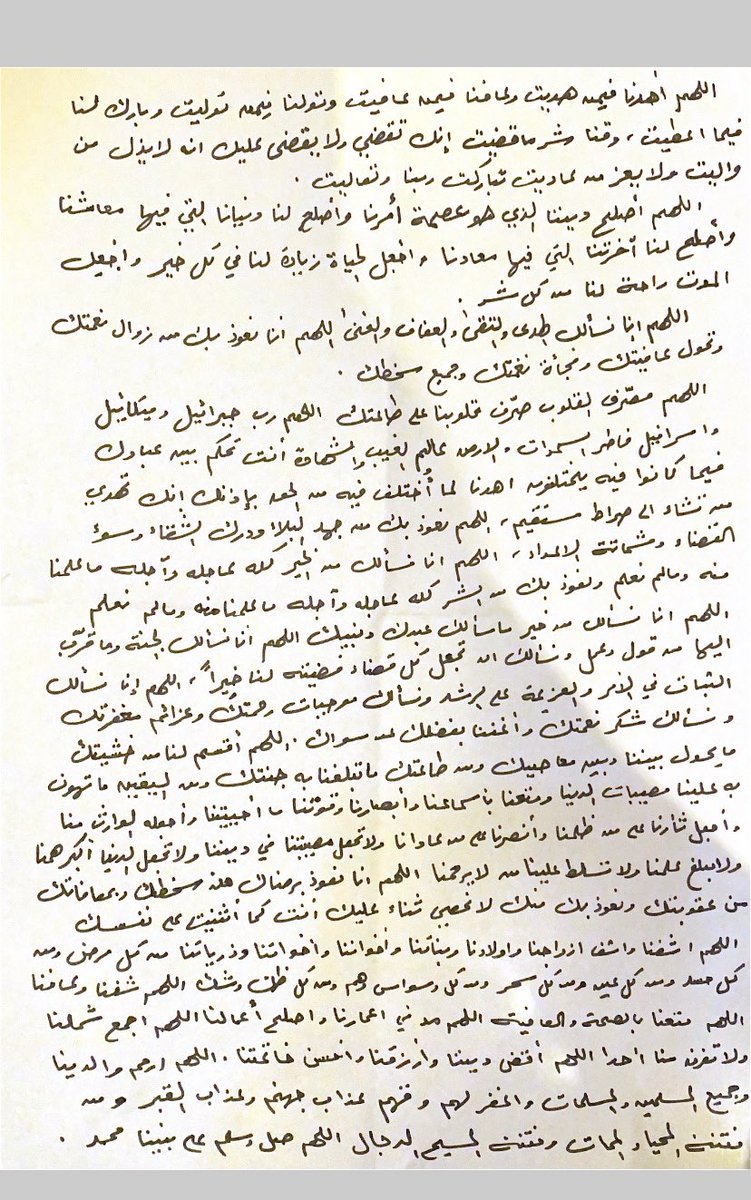 اللهم أهدنا فيمن هديت وعافنا فيمن عافيت وتولنا فيمن توليت وبارك لنا
فيما اعطيت، وقنا شر ما قضيت إنك تقضي ولا يقضى عليك انه لا يذل من
واليت ولا يعز من عاديت تباركت ربنا وتعاليت.
اللهم أصلح ديننا الذي هو عصمة أمرنا وأصلح لنا دنيانا التي فيها معاشنا
وأصلح لنا آخرتنا التي فيها معادنا، واجعل الحياة زيادة لنا في كل خير واجعل
الموت راحة لنا من كل شر.
اللهم إنا نسألك الهدى والتقى والعفاف والغنى اللهم انا نعوذ بك من زوال نعمتك
وتحول عافيتك وفجأة نقمتك وجميع سخطك.
اللهم مصرّف القلوب صرّف قلوبنا على طاعتك اللهم رب جبرائيل وميكائيل
واسرافيل فاطر السموات والارض عالم الغيب والشهادة أنت تحكم بين عبادك
فيما كانوا فيه يختلفون اهدنا لما أُختلف فيه من الحق بإذنك إنك تهدي
من تشاء الى صراط مستقيم، اللهم نعوذ بك من جهد البلاء ودرك الشقاء وسوء
القضاء وشماتة الاعداء، اللهم انا نسألك من الخير كله عاجله وآجله ما علمنا
منه ومالم نعلم ونعوذ بك من الشر كله عاجله وآجله ما علمنا منه ومالم نعلم
اللهم انا نسألك من خير ما سألك عبدك ونبيك اللهم انا نسألك الجنة وما قرّب
اليها من قول وعمل ونسألك ان تجعل كل قضاء قضيته لنا خيراً، اللهم إنا نسألك
الثبات في الأمر والعزيمة على الرشد ونسألك موجبات رحمتك وعزائم مغفرتك
ونسألك شكر نعمتك وأغننا بفضلك عمن سواك. اللهم أقسم لنا من خشيتك
ما يحول بيننا وبين معاصيك ومن طاعتك ما تبلغنا به جنتك ومن اليقين ما تهون
به علينا مصيبات الدنيا ومتعنا بأسماعنا وأبصارنا وقوتنا ما أحييتنا وأجعله الوارث منا
وأجعل ثأرنا على من ظلمنا وأنصرنا على من عادانا ولا تجعل مصيبتنا في ديننا ولا تجعل الدنيا أكبر همنا
ولا مبلغ علمنا ولا تسلط علينا من لا يرحمنا اللهم انا نعوذ برضاك من سخطك وبمعافاتك
من عقوبتك ونعوذ بك منك لا نحصي ثناء عليك أنت كما أثنيت على نفسك
اللهم اشفنا واشف ازواجنا واولادنا وبناتنا وأخواننا وأخواتنا وذرياتنا من كل مرض ومن
كل حسد ومن كل عين ومن كل سحر ومن كل وسواس وهم ومن كل ظن وشك اللهم شفنا وعافنا
اللهم متعنا بالصحة والعافية اللهم مد في اعمارنا واصلح أعمالنا اللهم اجمع شملنا
ولا تفرق منا أحدا اللهم أقض ديننا وأرزقنا وأحسن خاتمتنا. اللهم ارحم والدينا
وجميع المسلمين والمسلمات واغفر لهم وقهم عذاب جهنم وعذاب القبر ومن
فتنة المحيا والممات وفتنة المسيح الدجال اللهم صل وسلم على نبينا محمد.